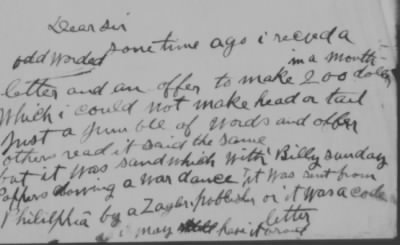 Dear Sir
sometime ago i recevd a
odd worded
in a month
letter and an offer to make 200 dollar
which i could not make head or tail
Just a jumble of words and offer
others read it said the same
but it was sandwhich with Billy Sunday
Pappers doning a war dance it was sent from
Phililphia by a Zayler publisher or it was a code
letter
i may have it around